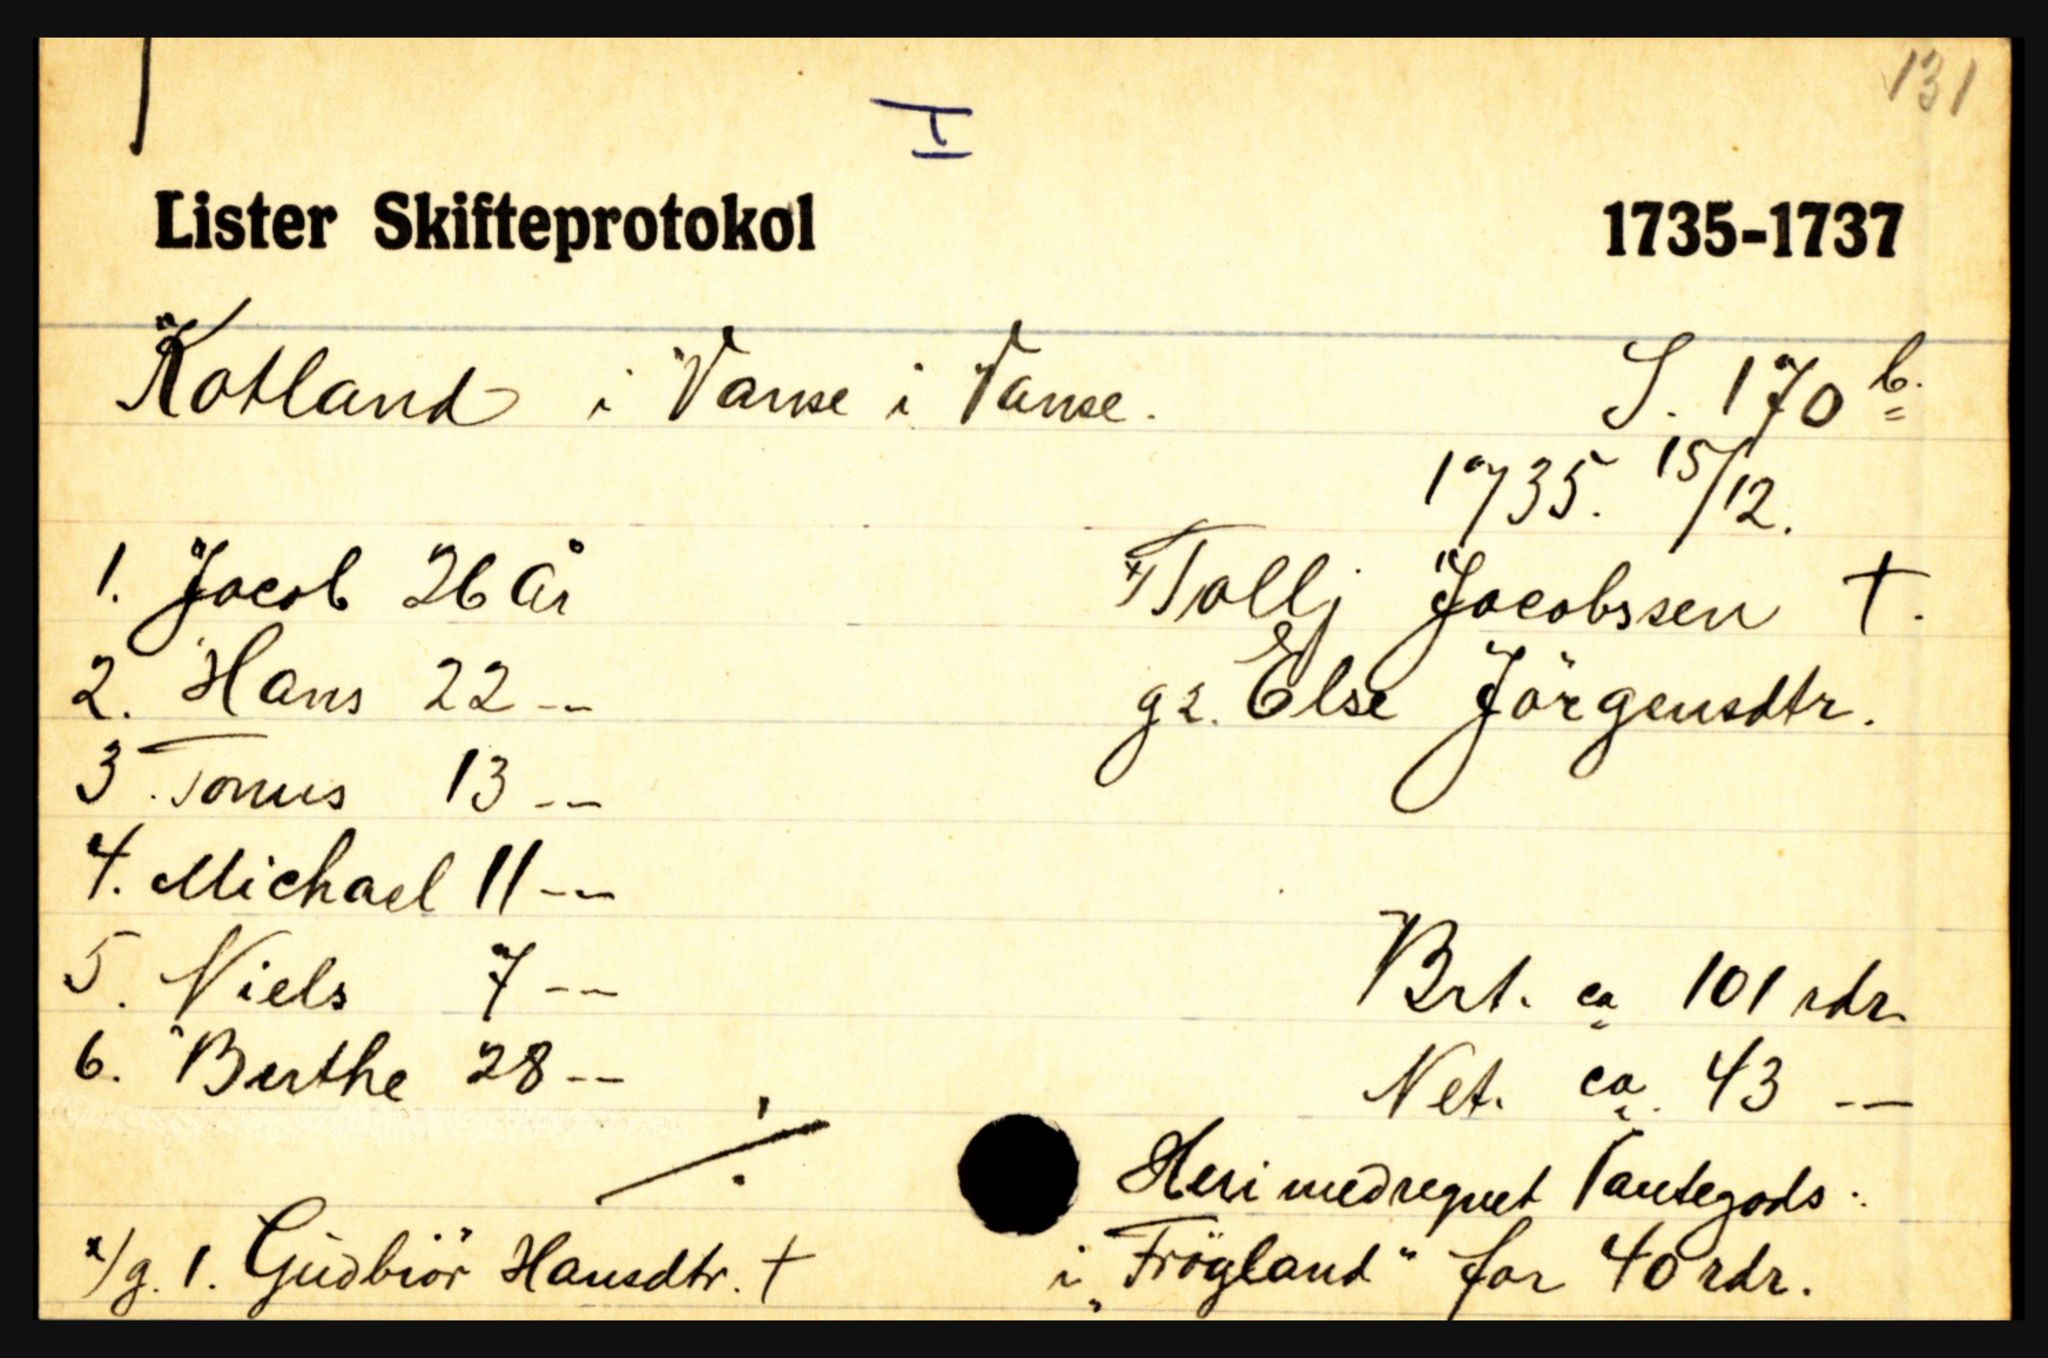 131
I
Lister Skifteprotokol 1735-1737
Kotland i Vanse i Vanse. S. 170 b.
1735. 15/12.
1. Jacob 26 år
x/ Tollj Jacobssen †.
2. Hans 22 --
g2. Else Jörgensdtr.
3. Tonnes 13 --
4. Michael 11 --
5. Niels 7 --
Brt. ca 101 rdr.
6. Berthe 28 --
Net. ca. 43 --
Heri medregnet Pantegods
x/ g. 1. Gudbiör Hansdtr. †
i „Frögland" for 40 rdr.